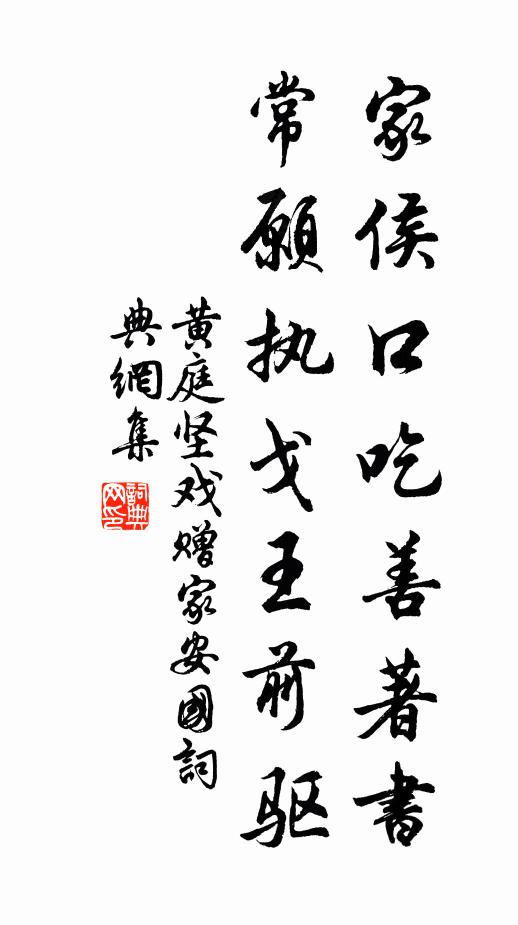 家侯口吃善著書
常願执戈王前驱
黄庭坚戏赠家安國詞
典網集
詞典
网印